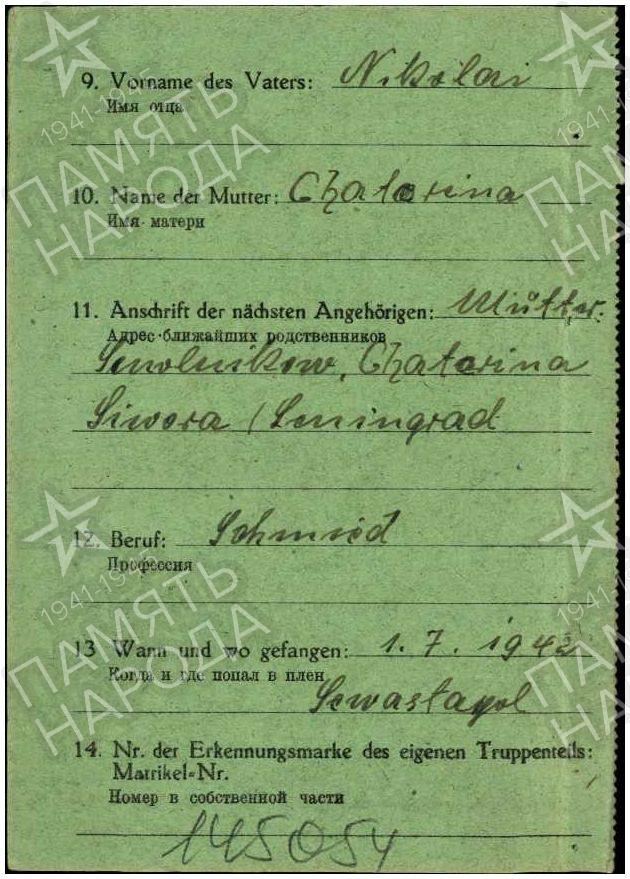 9. Vorname des Vaters: Nikolai
Имя отца
10. Name der Mutter: Chatarina
Имя матери
11. Anschrift der nächsten Angehörigen: Mutter.
Адрес ближайших родственников
Smolnikow, Chatarina
Siwora / Leningrad
12. Beruf: Schmied
Профессия
13 Wann und wo gefangen: 1. 7. 1942
Когда и где попал в плен
Sewastapol
14. Nr. der Erkennungsmarke des eigenen Truppenteils:
Matrikel-Nr.
Номер в собственной части
145054
1941-1945
ПАМЯТЬ
НАРОДА
1941-1945
ПАМЯТЬ
НАРОДА
1941-1945
ПАМЯТЬ
НАРОДА
1941-1945
ПАМЯТЬ
НАРОДА